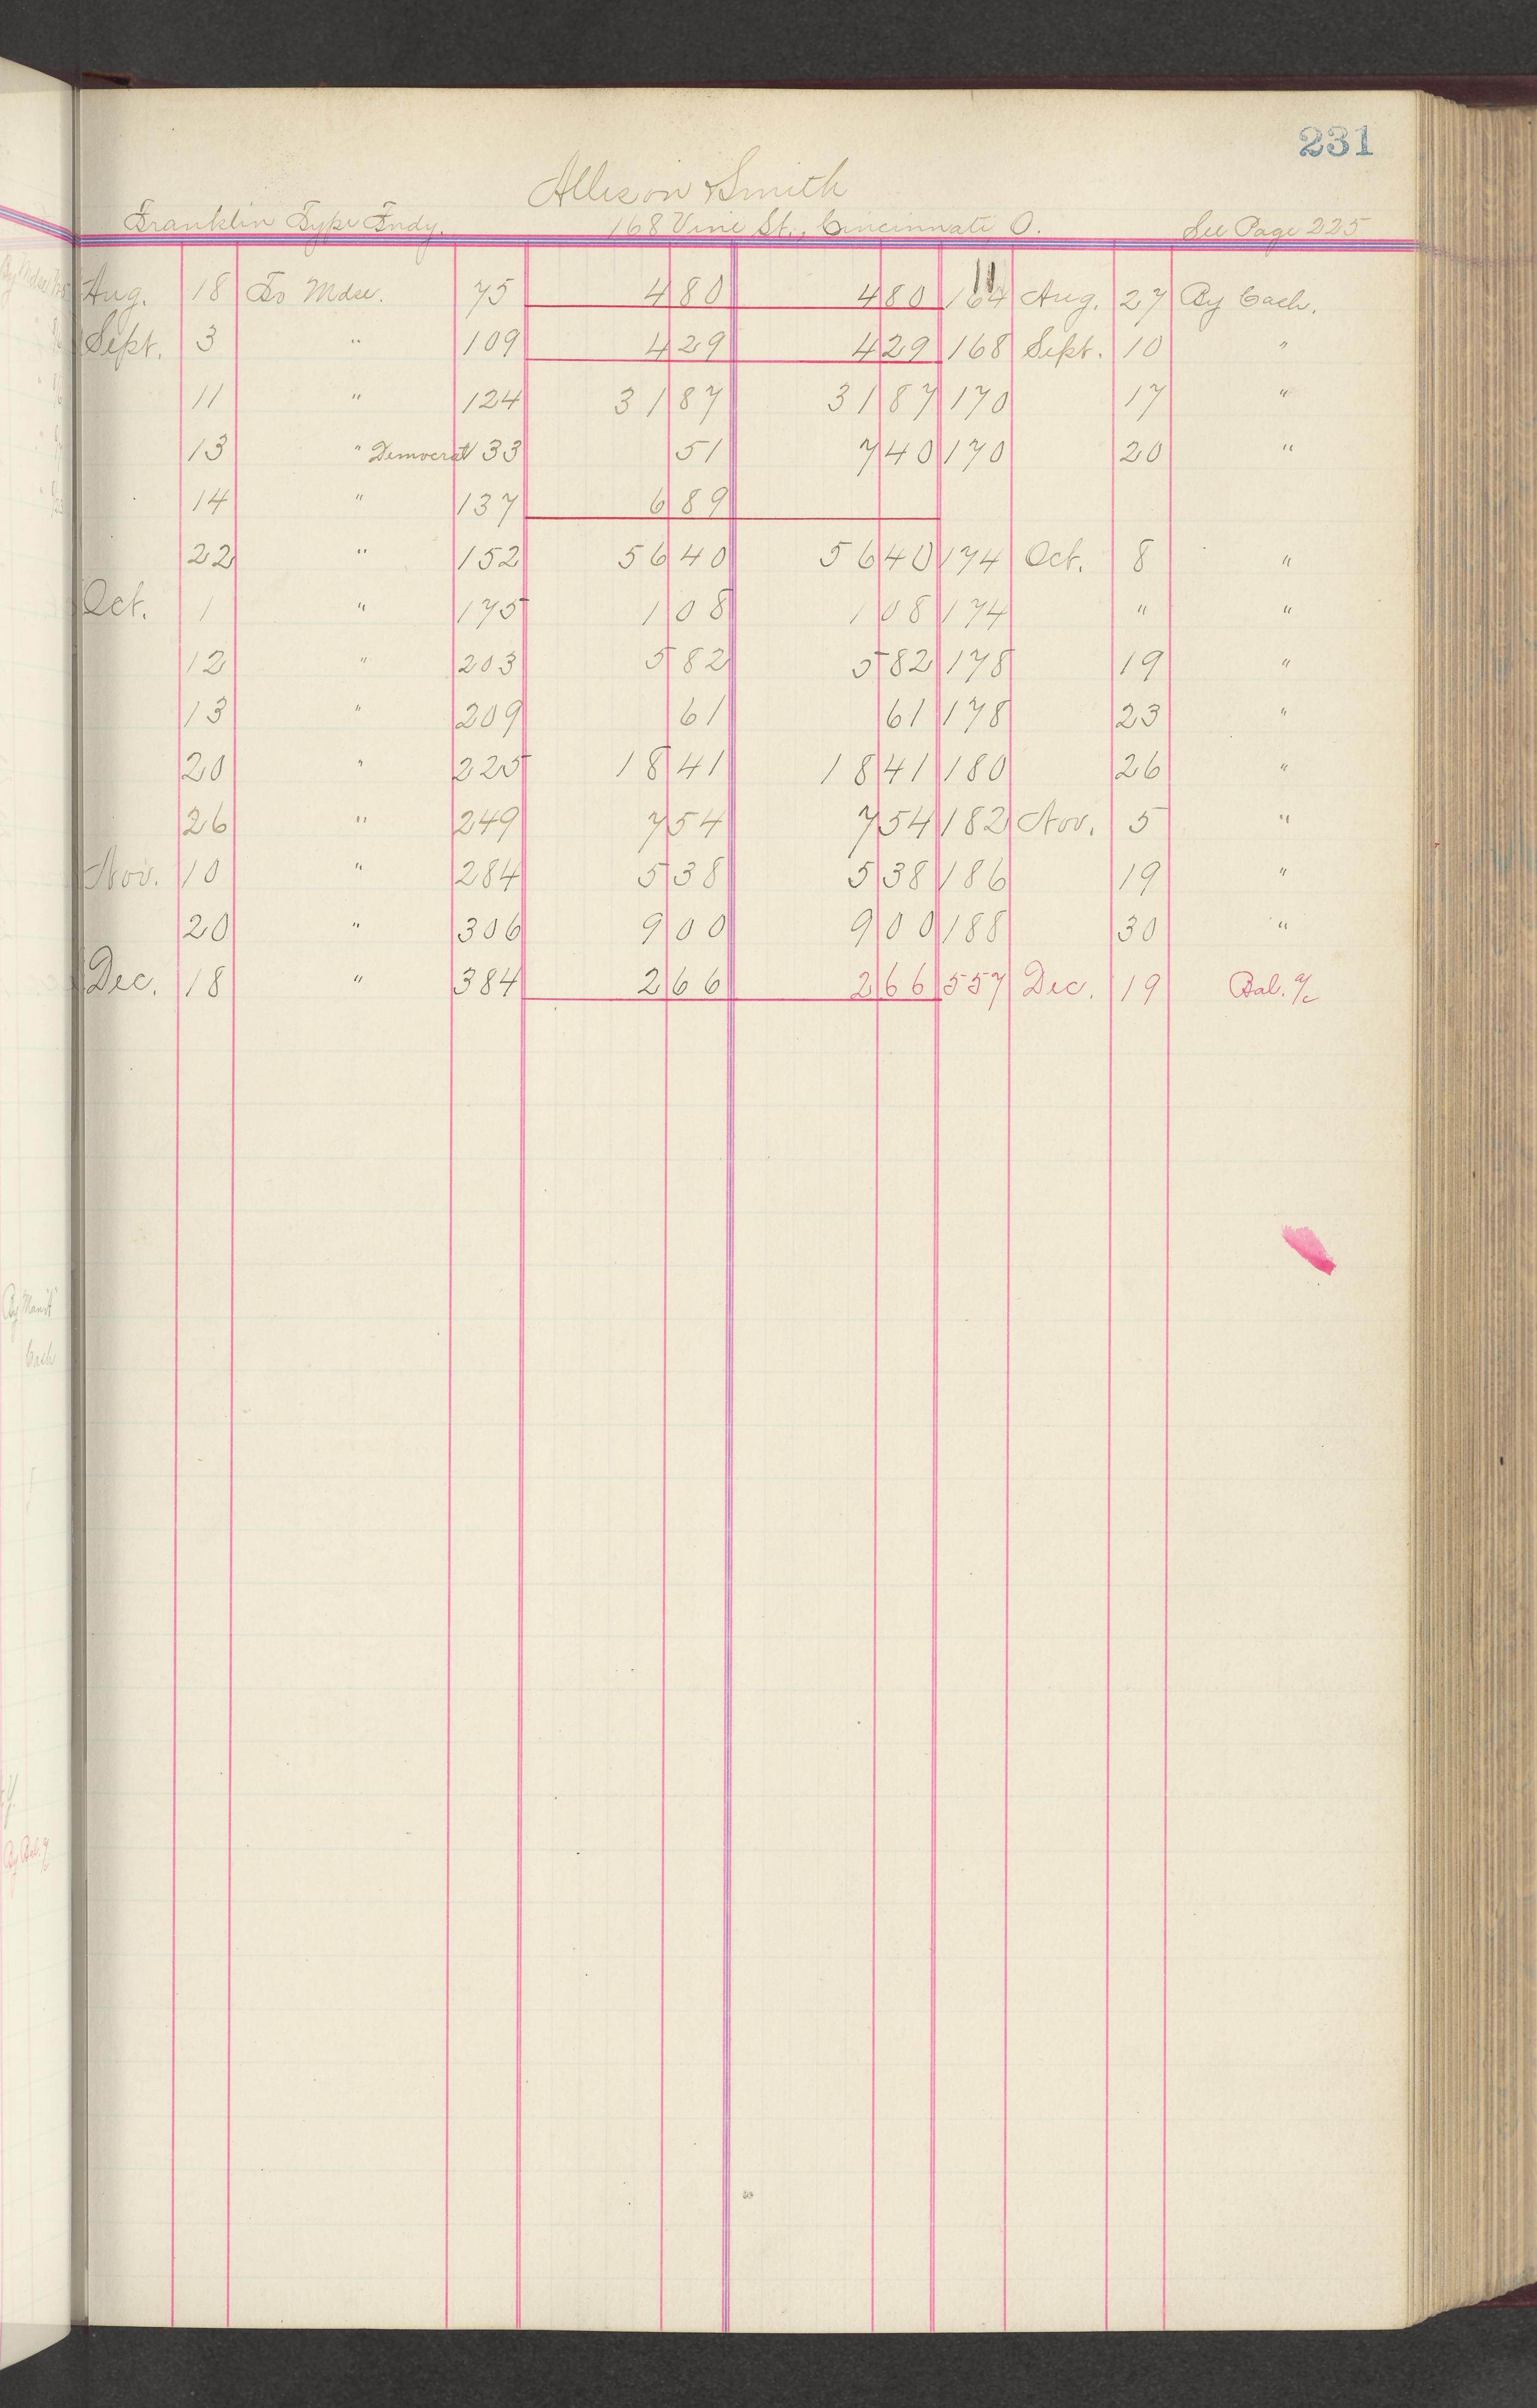 231
Allison & Smith
Franklin Type Fndy. 168 Vine St., Cincinnati O. See Page 225
Aug. 18 To Mdse. 75 4 80 4 80 164 Aug. 27 By Cash.
Sept. 3 " 109 4 29 4 29 168 Sept. 10 "
11 " 124 31 87 31 87 170 17 "
13 " Democrat 133 51 7 40 170 20 "
14 " 137 6 89
22 " 152 56 40 56 40 174 Oct. 8 "
Oct. 1 " 175 1 08 1 08 174 " "
12 " 203 5 82 5 82 178 19 "
13 " 209 61 61 178 23 "
20 " 225 18 41 18 41 180 26 "
26 " 249 7 54 7 54 182 Nov. 5 "
Nov. 10 " 284 5 38 5 38 186 19 "
20 " 306 9 00 9 00 188 30 "
Dec. 18 " 384 2 66 2 66 557 Dec. 19 Bal. a/c
By Mdse
By Man'f'
Cash
By Bal. a/c